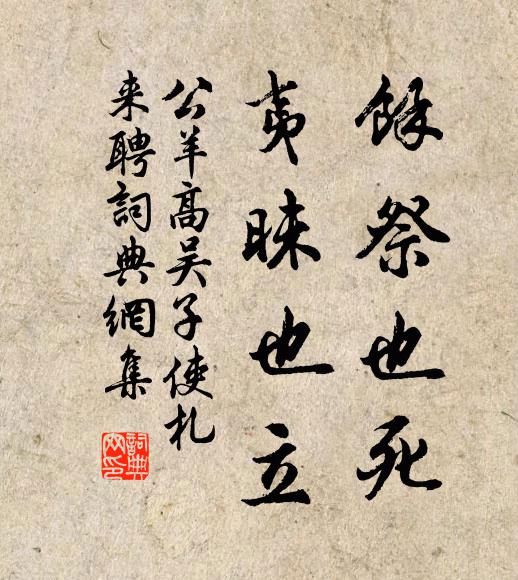 餘祭也死
夷昧也立
公羊高吴子使札
来聘詞典網集
詞典
网印